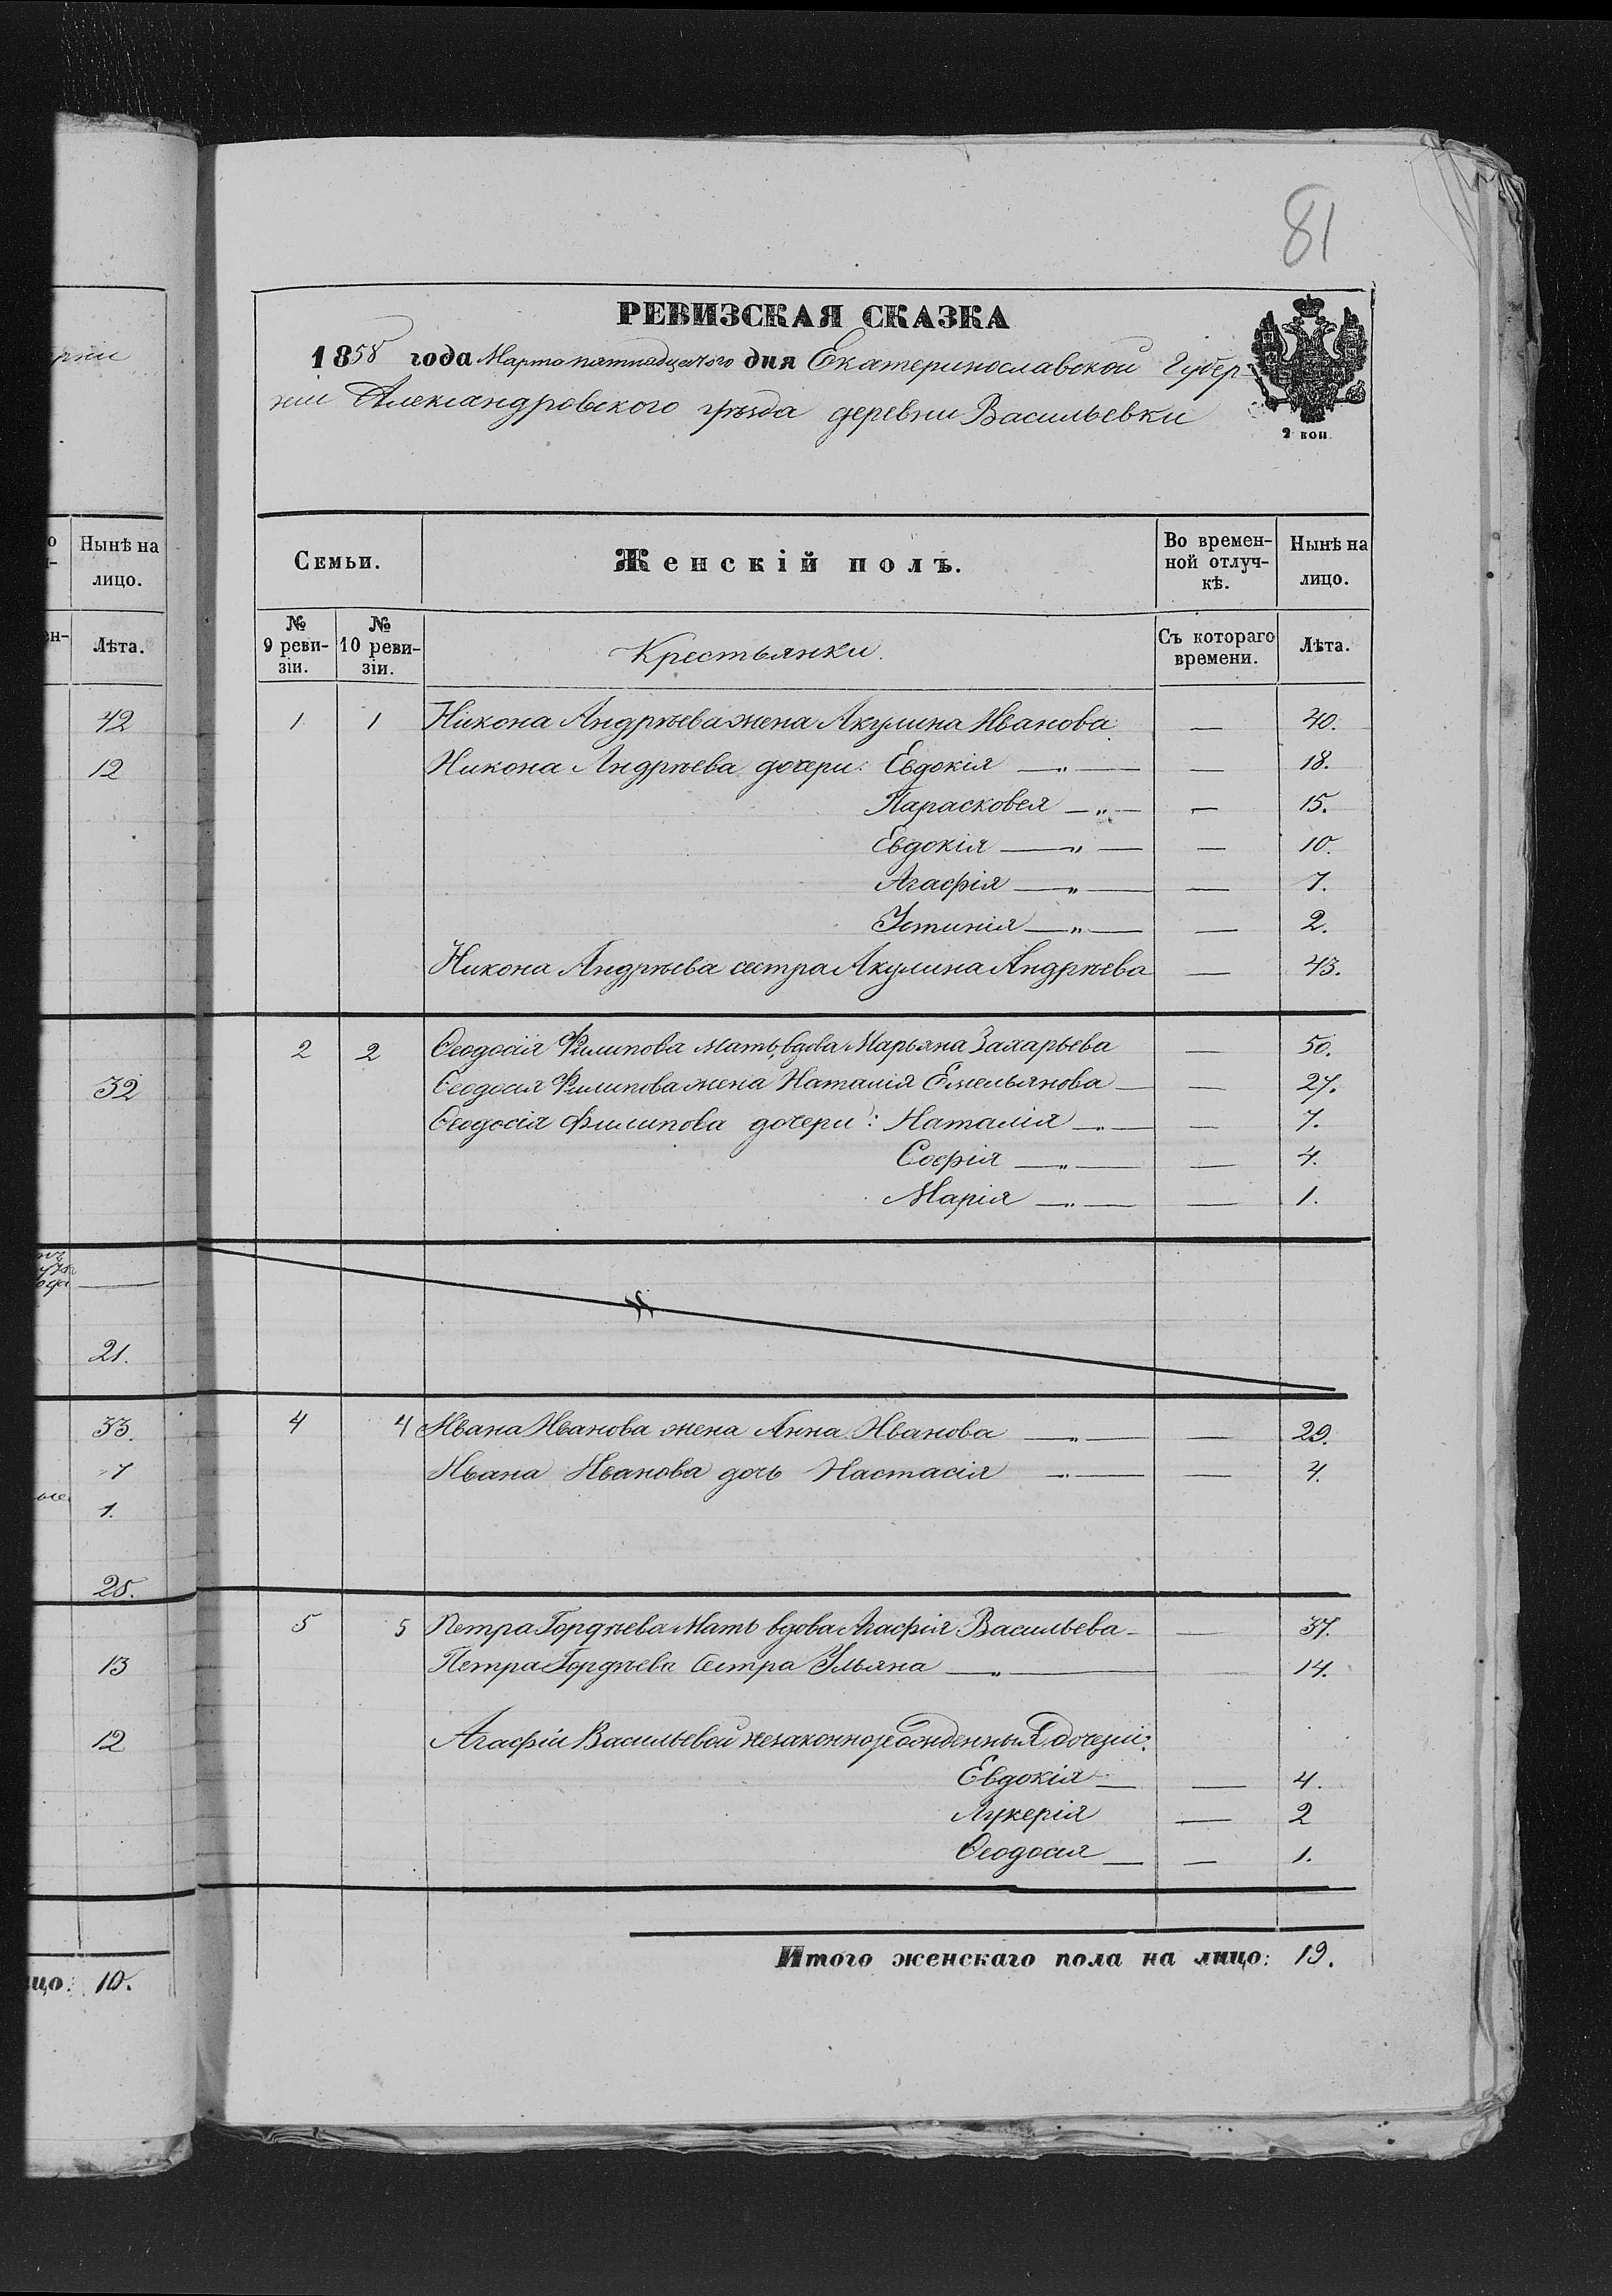 81
РЕВИЗСКАЯ СКАЗКА
1858 года Марта пятнадцатого дня Екатеринославской Губер-
ніи Александровского уѣзда деревни Васильевки
2 коп.
Нынѣ на
лицо.
Лѣта.
42
12
32
21.
33.
7
1.
25.
13
12
цо: 10.
Семьи. Женскій полъ. Во времен-
ной отлуч-
кѣ. Нынѣ на
лицо.
№
9 реви-
зіи. №
10 реви-
зіи. Крестьянки. Съ котораго
времени. Лѣта.
1 1 Никона Андрѣева жена Акулина Иванова — 40.
Никона Андрѣева дочери: Евдокія —„— — 18.
Парасковея —„— — 15.
Евдокія —„— — 10.
Агафія —„— — 7.
Устинія —„— — 2.
Никона Андрѣева сестра Акулина Андрѣева — 43.
2 2 Ѳеодосія Филипова мать, вдова Марьяна Захарьева — 50.
Ѳеодосія Филипова жена Наталія Емельянова — — 27.
Ѳеодосія Филипова дочери: Наталія —„— — 7.
Софія —„— — 4.
Марія —„— — 1.
4 4 Ивана Иванова жена Анна Иванова —„— — 29.
Ивана Иванова дочь Настасія —„— — 4.
5 5 Петра Гордѣева Мать вдова Агафія Васильева — — 37.
Петра Гордѣева Сестра Ульяна —„— — 14.
Агафіи Васильевой незаконнорожденныя дочери:
Евдокія — — 4.
Лукерія — 2
Ѳеодосія — — 1.
Итого женскаго пола на лицо: 19.